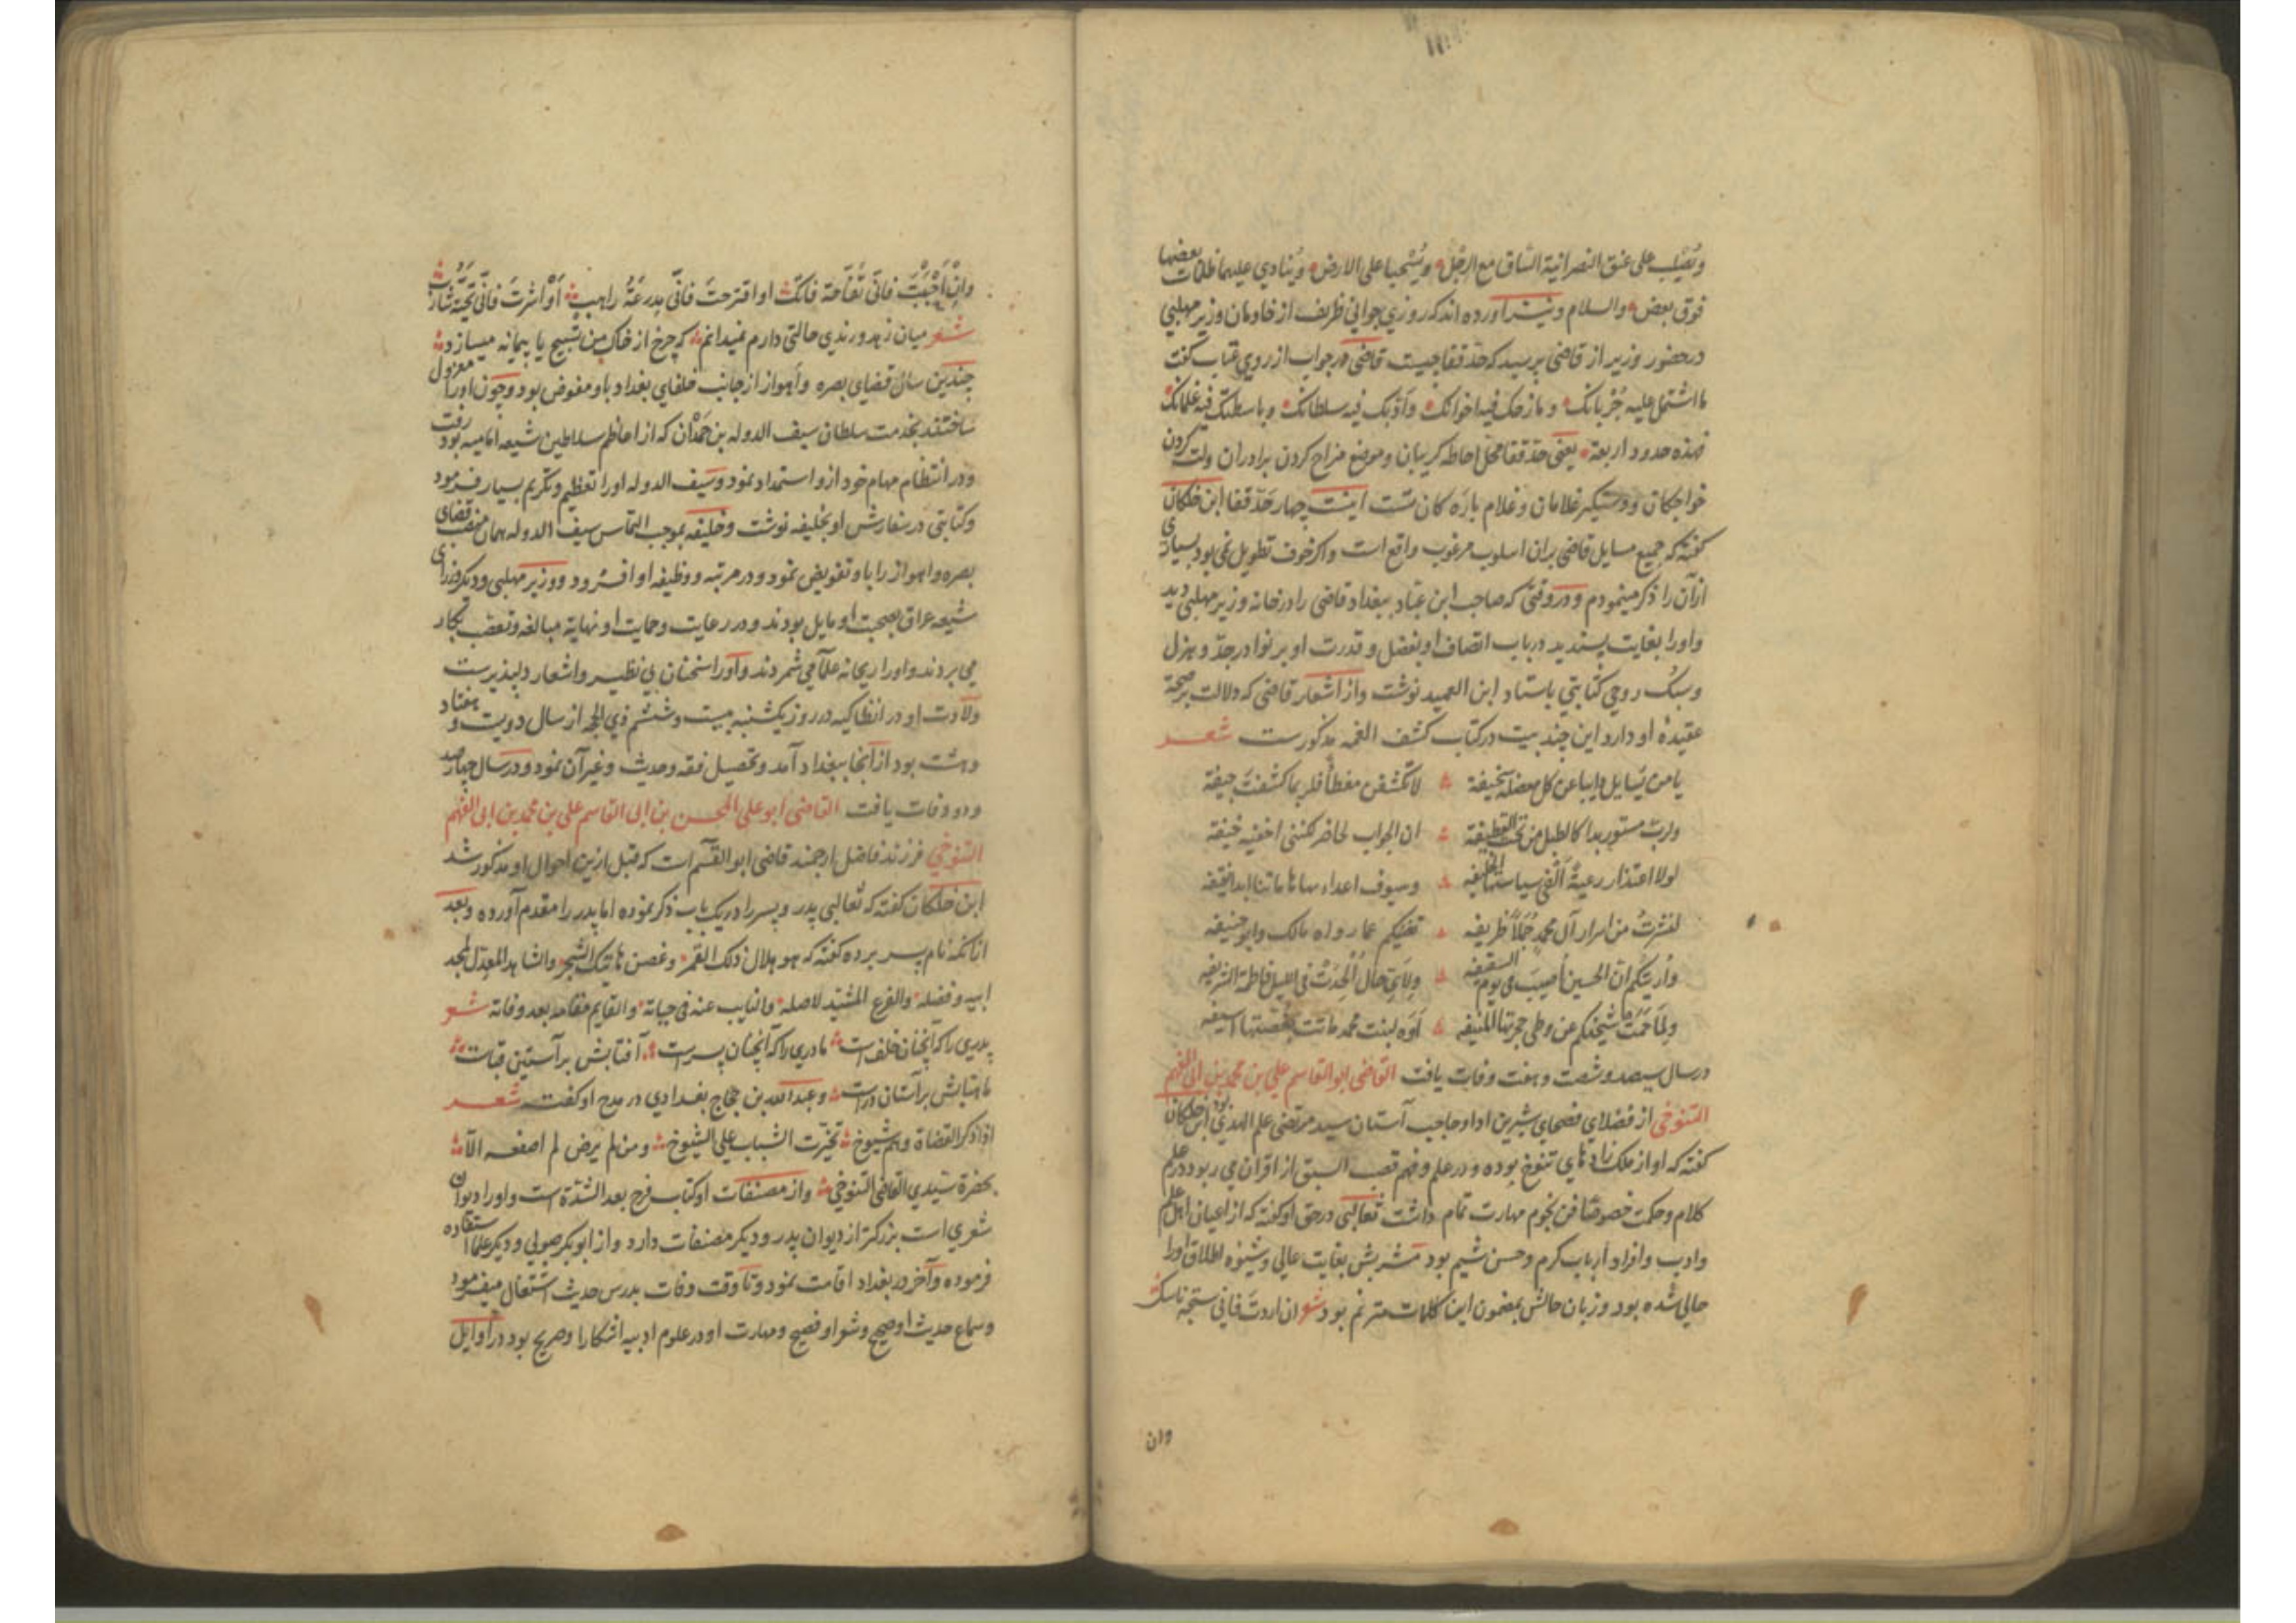 ويصلب على عنق النصرانية الساق مع الرجل ويسحبا على الارض وينادي عليهما ظلمات بعضها
فوق بعض والسلام ونیز آورده اند که روزی جوانی ظریف از خادمان وزیر مهلبی
در حضور وزیر از قاضی پرسید که حدّ قفا چیست قاضی در جواب از روی عتاب گفت
ما اشتمل علیه جُرُبّانک و مازحک فیه اخوانک وادّبک فیه سلطانک وباسطک فیه غلمانک
فهذه حدود اربعة یعنی حدّ قفا محلّ احاطه گریبان و موضع مزاح کردن برادران ولت کردن
خواجکان و دستگیر غلامان و غلام باره کان تست اینست چهار حدّ قفا ابن خلکان
گفته که جمیع مسایل قاضی بران اسلوب مرغوب واقع است واکر خوف تطویل نمی بود بسیاری
از آن را ذکر مینمودم و در وقتی که صاحب ابن عباد ببغداد قاضی را در خانه وزیر مهلبی دید
واورا بغایت پسندید در باب اتصاف او بفضل و قدرت او بر نوادر جدّ و هزل
وسبک روحی کتابتی باستاد ابن العمید نوشت واز اشعار قاضی که دلالت بر صحة
عقیدهٔ او دارد این چند بیت در کتاب کشف الغمه مذکورست شعر
یا من یسایل دایبا عن کل معضلة سخیفة لا تکشفن مغطأ فلربما کشفت جیفة
ولربّ مستور بدا کالطبل من تحت القطیفة ان الجواب لحاضر لکننی اخفیه خیفة
لولا اعتذار رعیة الغی سیاستها الخلیفه وسیوف اعداء بها هاماتنا ابدا نقیفه
لنشرتُ من اسرار آل محمدٍ جُمَلاً ظریفه تغنیکم عما رواه مالک وابو حنیفه
واریتکم انّ الحسین اُصیبَ فی یوم السقیفه ولایّ حال اُلحِدَتْ فی اللیل فاطمة الشریفه
ولما حَمَت شیخیکم عن وطی حجرتها المنیفه اَوّه لبنت محمد ماتت بغصّتها اسیفه
در سال سیصد و شصت و هفت وفات یافت القاضی ابو القاسم علی بن محمد بن ابی الفهم
التنوخی از فضلای فصحای شیرین ادا وحاجب آستان سید مرتضی علم الهدی بود ابن خلکان
گفته که او از ملک زادهای تنوخ بوده و در علم و فهم قصب السبق از اقران می ربود در علم
کلام و حکمت خصوصًا فن نجوم مهارت تمام داشت ثعالبی در حق او گفته که از اعیان اهل علم
وادب وافراد ارباب کرم و حسن شیم بود مشربش بغایت عالی و شیوه اطلاق اورا
حالی شده بود وزبان حالش بمضمون این کلمات مترنم بود شعر ان اردت فانی سبحة ناسک
وان
وان احببتَ فانّی تفّاحة فاتک او اقترحتَ فانّی مدرعَةُ راهب او آثرتَ فانّی تحیّة شارب
شعر میان زهد و رندی حالتی دارم نمیدانم که چرخ از خاک من تسبیح یا پیمانه میسازد
چندین سال قضای بصره واهواز از جانب خلفای بغداد باو مفوض بود وچون اورا معزول
ساختند بخدمت سلطان سیف الدوله بن حمدان که از اعاظم سلاطین شیعه امامیه بود رفت
ودر انتظام مهام خود ازو استمداد نمود وسیف الدوله اورا تعظیم وتکریم بسیار فرمود
وکتابتی در سفارش او بخلیفه نوشت وخلیفه بموجب التماس سیف الدوله همان منصب قضای
بصره واهواز را باو تفویض نمود و در مرتبه و وظیفه او افزود و وزیر مهلبی ودیکر وزرای
شیعه عراق بصحبت او مایل بودند و در رعایت وحمایت او نهایة مبالغه وتعصب بکار
می بردند واورا ریحانه علما می شمردند واورا سخنان بی نظیر واشعار دلپذیرست
ولادت او در انطاکیه در روز یکشنبه بیست وششم ذی الحجه از سال دویست وهفتاد
وهشت بود از آنجا ببغداد آمد وتحصیل فقه وحدیث وغیر آن نمود و در سال چهارصد
ودو وفات یافت القاضی ابو علی المحسن بن ابی القاسم علی بن محمد بن ابی الفهم
التنوخی فرزند فاضل ارجمند قاضی ابو القسم است که قبل ازین احوال او مذکور شد
ابن خلکان گفته که ثعالبی پدر وپسر را در یک باب ذکر نموده اما پدر را مقدم آورده وبعد
ازانکه نام پسر برده گفته که هو هلال ذلک القمر وغصن هاتیک الشجر والشاهد المعدّل لمجد
ابیه وفضله والفرع المشیّد لاصله والنایب عنه فی حیاته والقایم مقامه بعد وفاته شعر
پدری را که آنچنان خلف است مادری را که آنچنان پسرست آفتابش بر آستین قباست
ماهتابش بر آستان درست وعبد الله بن حجاج بغدادی در مدح او گفت شعر
اذا ذکر القضاة وهم شیوخ تخیّرت الشباب علی الشیوخ ومن لم یرض لم اصفعه الّا
بحضرة سیّدی القاضی التنوخی واز مصنفات او کتاب فرج بعد الشدّة است واورا دیوان
شعری است بزرکتر از دیوان پدر ودیکر مصنفات دارد واز ابو بکر صولی ودیکر علما استفاده
فرموده وآخر در بغداد اقامت نمود وتا وقت وفات بدرس حدیث اشتغال میفرمود
وسماع حدیث او صحیح وشعر او فصیح ومهارت او در علوم ادبیه آشکارا وصریح بود در اوایل